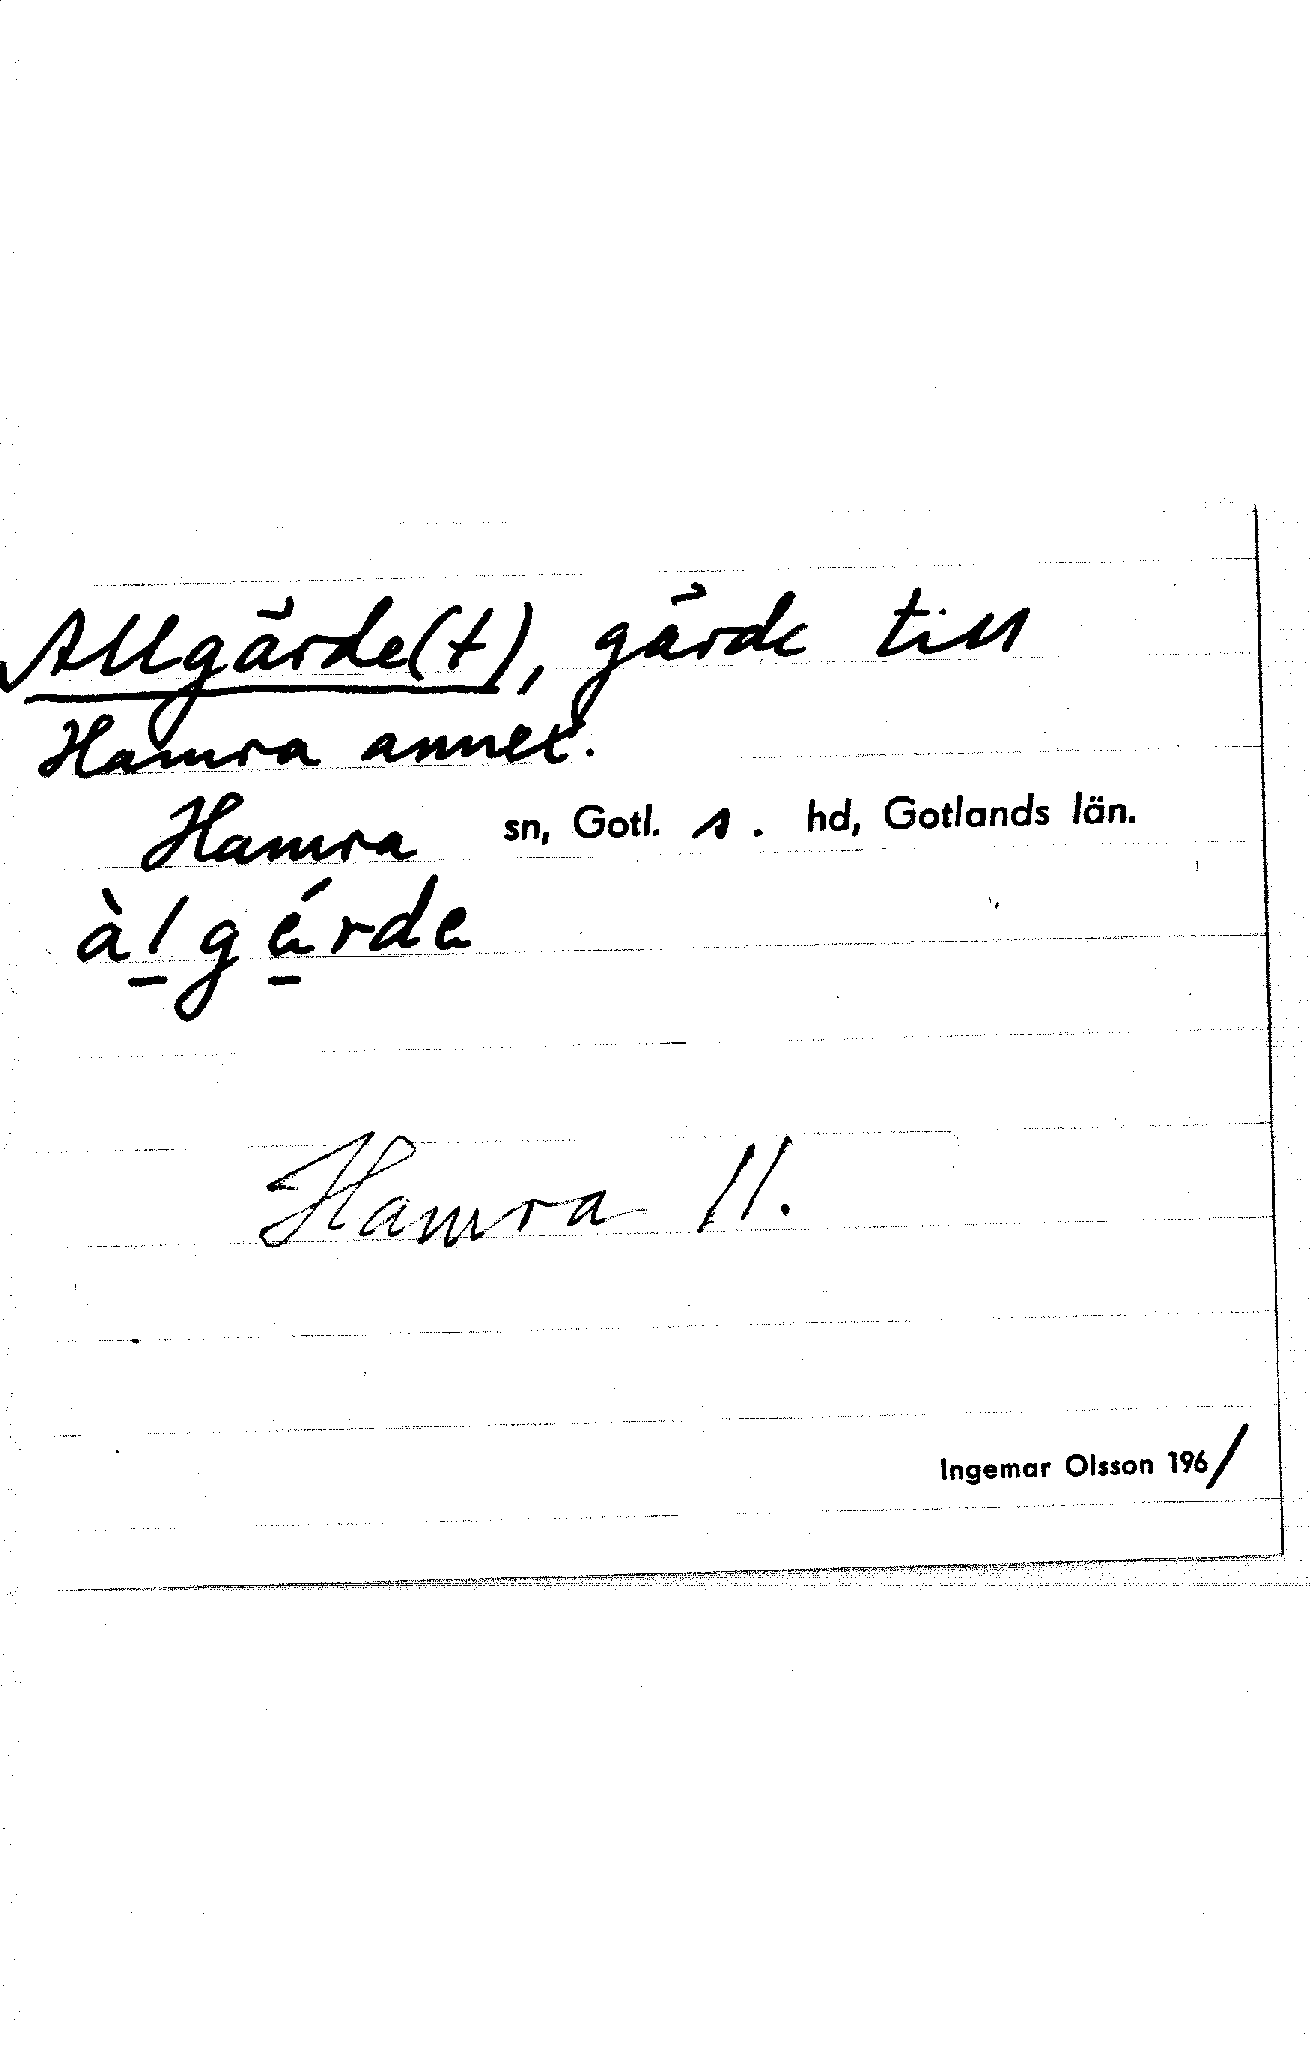 Allgärde(t), gärde till
Hamra annex.
Hamra sn, Gotl. s. hd, Gotlands län.
àlgérde
Hamra 11.
Ingemar Olsson 1961